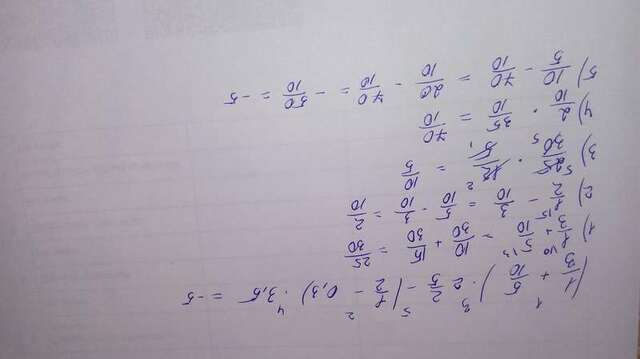 (1/3 + 5/10) · 2 2/5 - (1/2 - 0,3) · 3,5 = -5
1) 1/3 + 5/10 = 10/30 + 15/30 = 25/30
2) 1/2 - 3/10 = 5/10 - 3/10 = 2/10
3) 25/30 · 12/5 = 10/5
4) 2/10 · 35/10 = 70/10
5) 10/5 - 70/10 = 20/10 - 70/10 = - 50/10 = -5